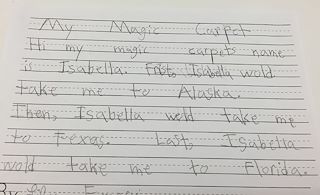 My Magic Carpet
Hi my magic carpets name
is Isabella. First, Isabella wold
take me to Alaska.
Then, Isabella wold take me
to Texas. Last, Isabella
wold take me to Florida.